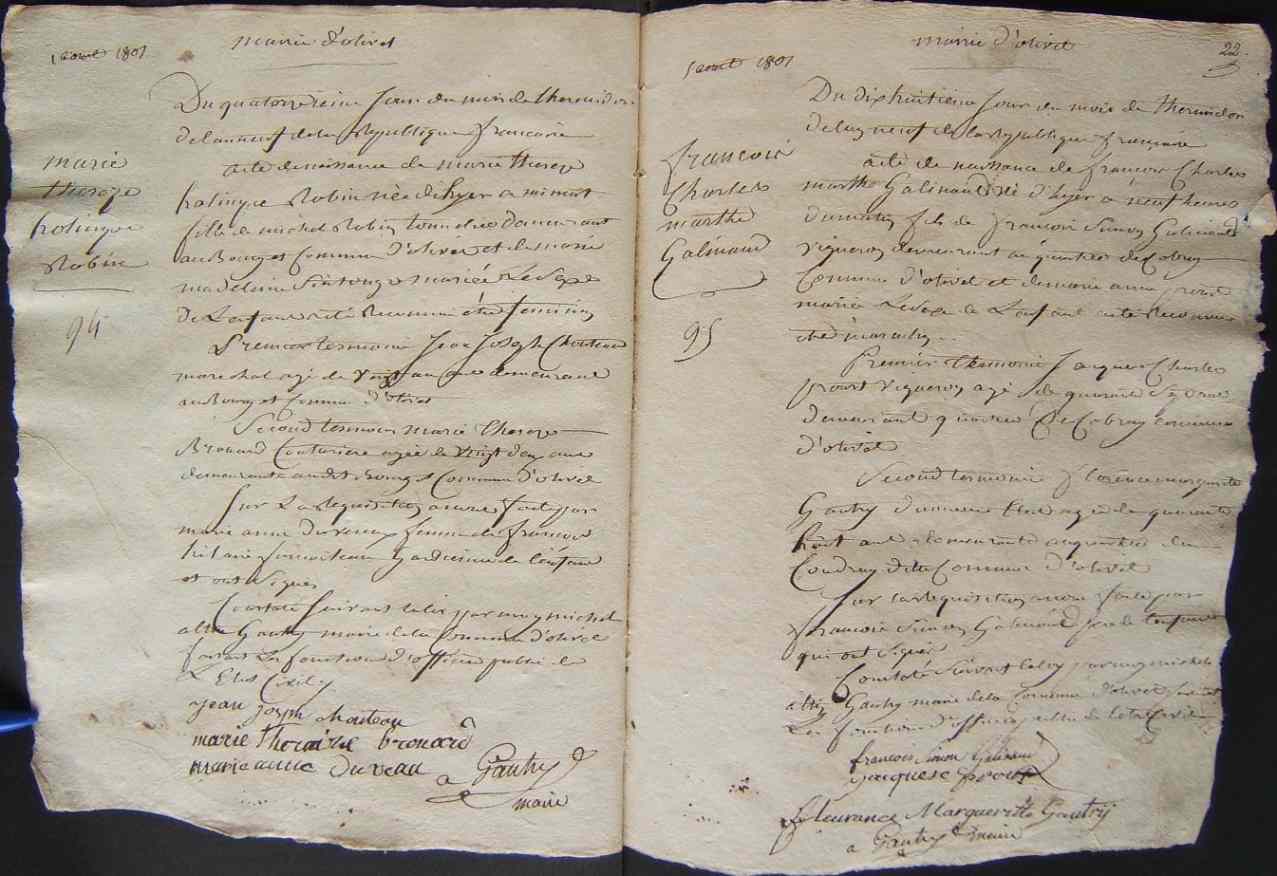 mairie d'olivet
1 aout 1801
Du quatorzieme Jour du mois de thermidor
de lan neuf de la Republique francaise
acte de naissance de marie thereze
Robin née d'hyer a minuit
fille de michel Robin tonnelier demeurant
au Bourg et Commune d'olivet et de marie
madeleine mariée Le Sexe
De Lenfant a été Reconnu être feminin
Premier temoin Jean Joseph Choiteau
marechal agé de Vingt un ans demeurant
au Bourg et Commune d'olivet
Second temoin marie thereze
Brouard Couturiere agée de Vingt deux ans
demeurante audit Bourg et Commune d'olivet
Sur La Requisition a nous faite par
marie anne duveau femme de francois
hilaire Gardienne de l'enfant
et ont Signer
Constaté Suivant la loi par moy michel
Gautry maire de la Commune d'olivet
faisant Les fonctions d'officier public de
L'Etat Civil
jean joseph choiteau
marie theraize brouard
marie anne duveau
a Gautry
maire
marie
thereze
Robin
94
mairie d'olivet
22.
5 aout 1801
Du dixhuitieme Jour du mois de thermidor
de lan neuf de la Republique francaise
acte de naissance de francois Charles
marthe Galinaud né d'hyer a neuf heures
du matin fils de francois Simon Galinaud
vigneron demeurant au quartier de Cobray
Commune d'olivet et de marie anne proust
mariée Le Sexe de Lenfant a été Reconnu
etre masculin
Premier themoin Jacques Charles
proust vigneron agé de quarante Sept ans
demeurant quartier de Cobray commune
d'olivet
Second temoin florence margueritte
Gautry agée de quarante
huit ans demeurante au quartier du
Coudray dite Commune d'olivet
Sur la requisition a nous faite par
francois Simon Galinaud pere de lenfant
qui ont Signer
Constaté Suivant la loy par moy michel
Gautry maire de la Commune d'olivet faisant
Les fonctions d'officier public de l'etat Civil
francois Simon Galinaud
jacquese proust
fleurance Margueritte Gautry
a Gautry maire
francois
Charles
marthe
Galinaud
95